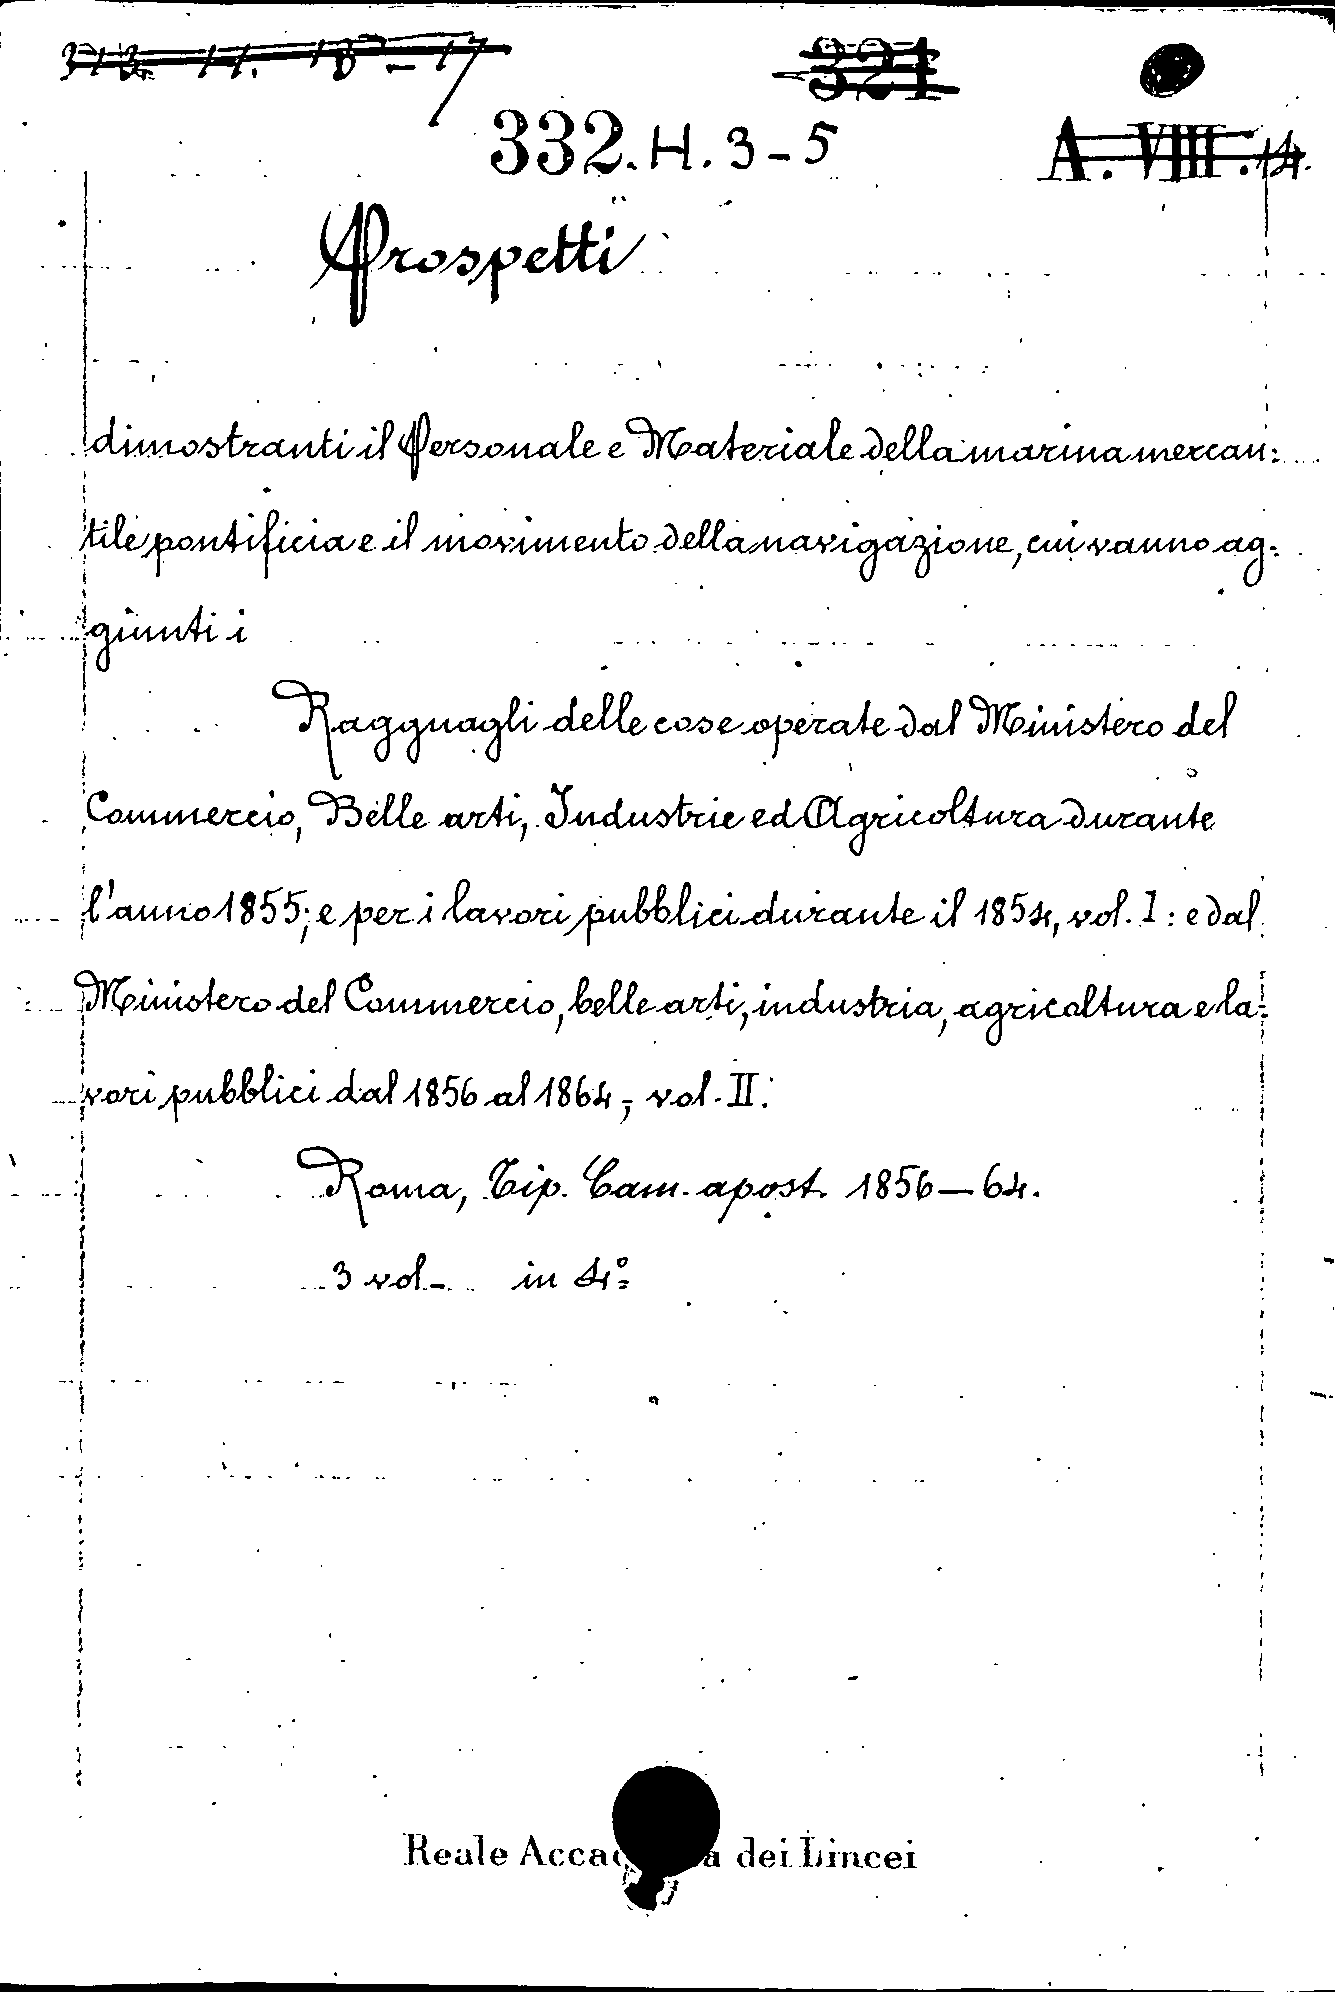 321
332. H. 3-5
A. VIII. 14.
Prospetti
dimostranti il Personale e Materiale della marina mercan:
tile pontificia e il movimento della navigazione, cui vanno ag:
giunti i
Ragguagli delle cose operate dal Ministero del
Commercio, Belle arti, Industrie ed Agricoltura durante
l'anno 1855; e per i lavori pubblici durante il 1854, vol. I: e dal
Ministero del Commercio, belle arti, industria, agricoltura e la:
vori pubblici dal 1856 al 1864; vol. II.
Roma, Tip. Cam. apost. 1856-64.
3 vol- in 4º
Reale dei Lincei